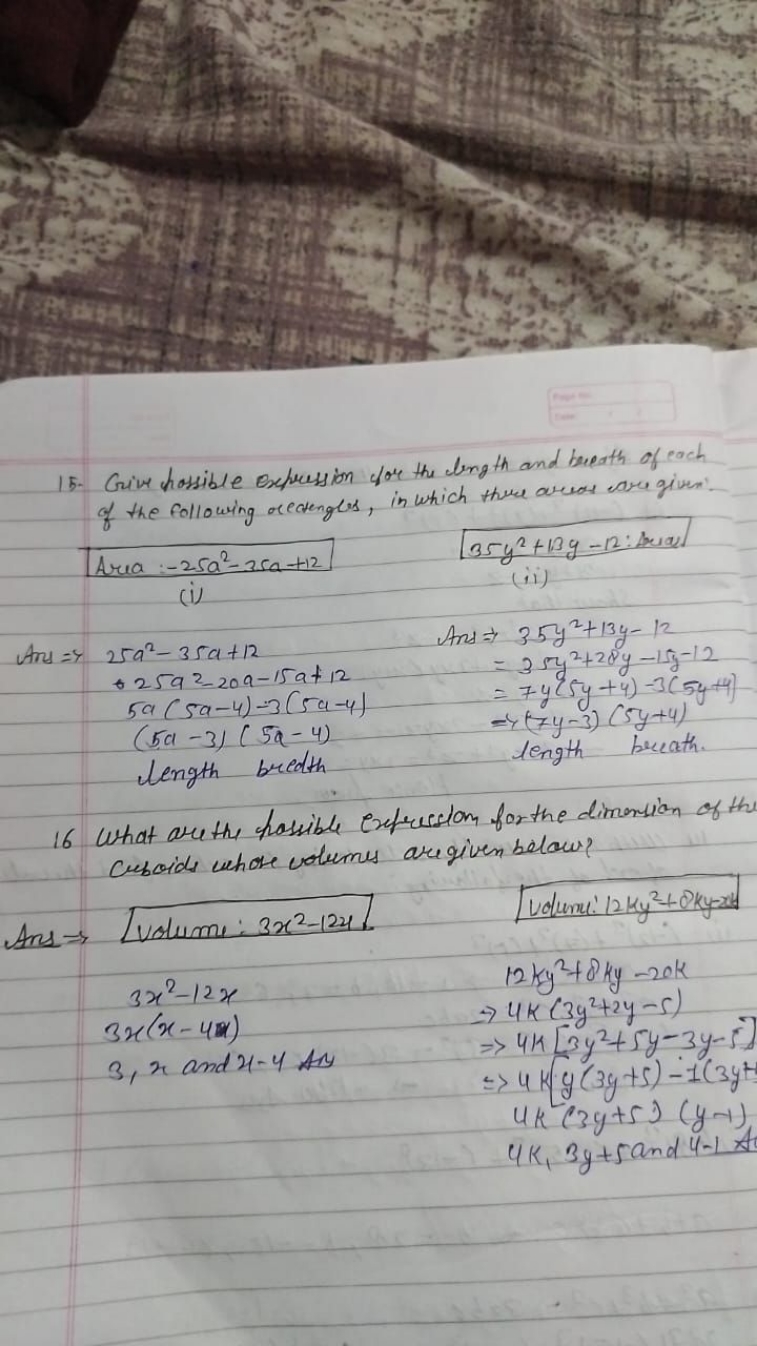 15- Give possible expression for the length and breath of each
of the following rectengles, in which there areas are given.
Area :- 25a²-35a+12
(i)
35y²+13y-12: Area
(ii)
Ans ⇒ 25a²-35a+12
25a²-20a-15a+12
5a(5a-4)-3(5a-4)
(5a-3) (5a-4)
length bredth
Ans ⇒ 35y²+13y-12
= 35y²+28y-15y-12
= 7y(5y+4)-3(5y+4)
⇒ (7y-3) (5y+4)
length breath.
16 What are the possible expression for the dimension of the
Cuboids whose volumes are given below?
Ans ⇒ Volume : 3x²-12x
3x²-12x
3x(x-4)
3, x and x-4 Ans
Volume: 12ky²+8ky-20k
12ky²+8ky-20k
⇒ 4K(3y²+2y-5)
⇒ 4K[3y²+5y-3y-5]
⇒ 4K[y(3y+5)-1(3y+
4K(3y+5) (y-1)
4K, 3y+5 and y-1 A